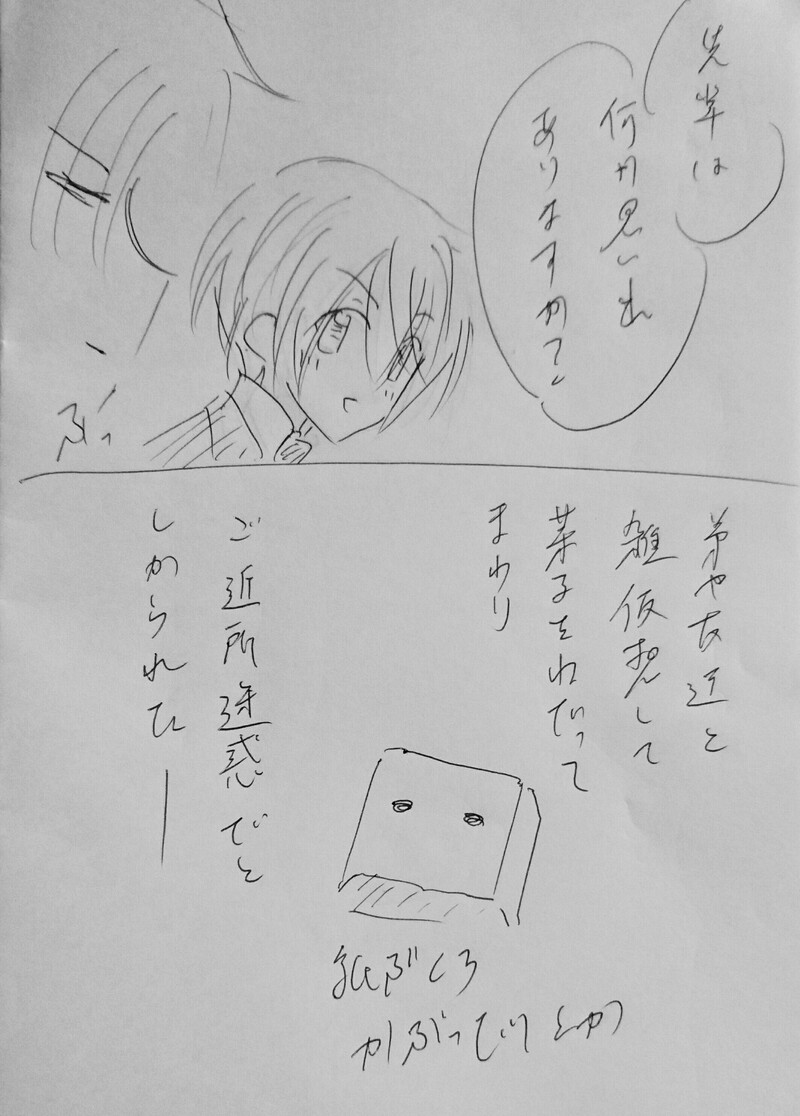 先輩は
何か思い出
ありますか?
ぶっ
弟や友達と
雑仮想して
菓子をねだって
まわり
ご近所迷惑だと
しかられた—
紙ぶくろ
かぶったりとか